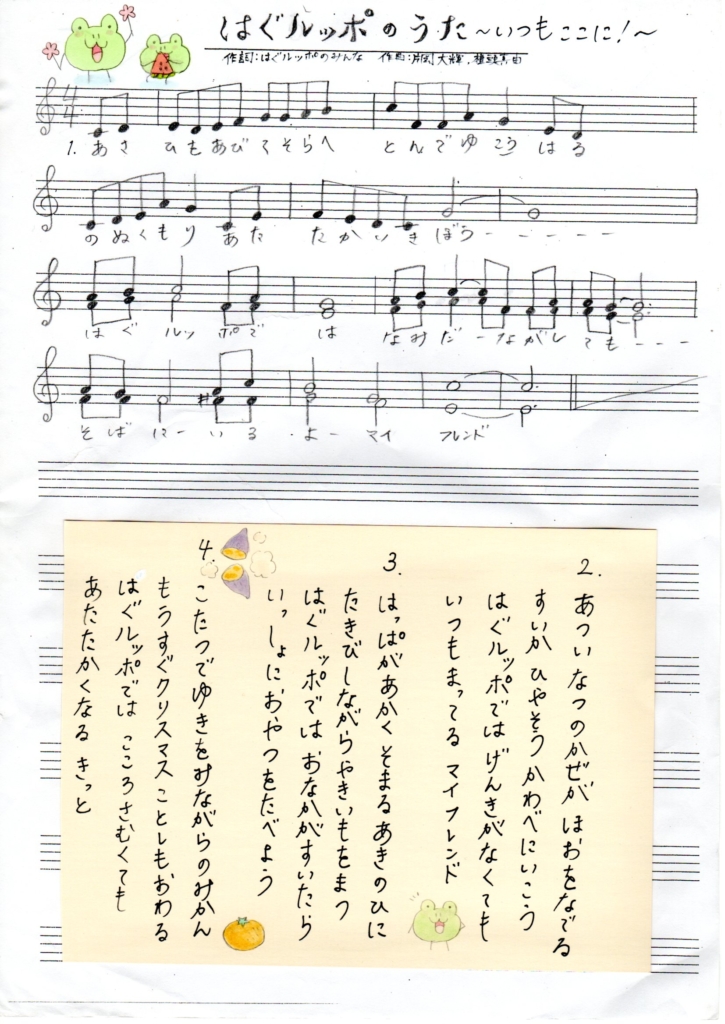 はぐルッポのうた〜いつもここに!〜
作詞:はぐルッポのみんな 作曲: 大輝,
4
4
1. あさ ひもあびてそらへ とんでゆこう はる
のぬくもり あた たかいきぼうーーーーー
はぐ ルッ ポで は なみだーながし てもーーー
そばにーいる よー マイ フレンド
2. あついなつのかぜが ほおをなでる
すいか ひやそう かわべにいこう
はぐルッポでは げんきがなくても
いつもまってる マイフレンド
3. はっぱがあかく そまる あきのひに
たきびしながら やきいもをまつ
はぐルッポでは おなかがすいたら
いっしょにおやつをたべよう
4. こたつでゆきをみながらのみかん
もうすぐクリスマス ことしもおわる
はぐルッポでは こころさむくても
あたたかくなる きっと